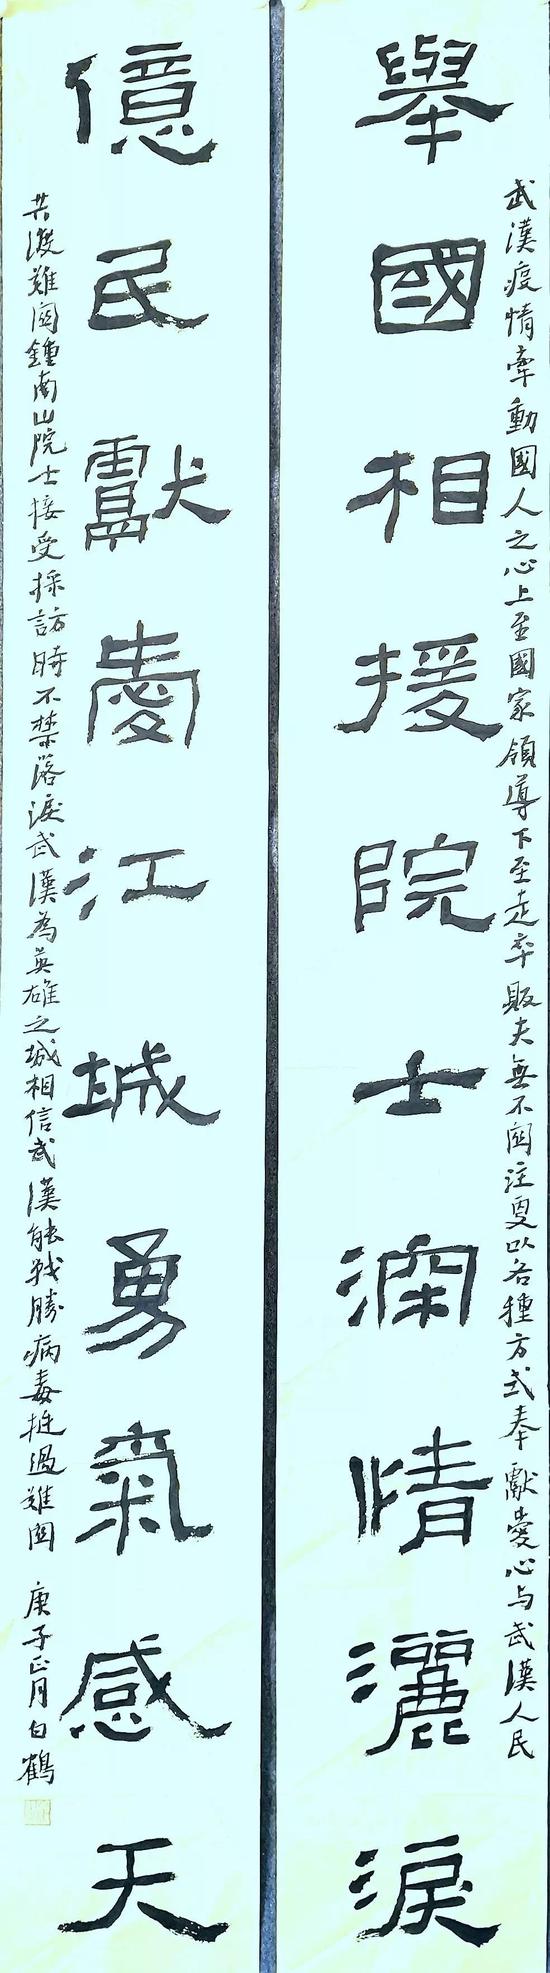 舉國相援院士深情灑淚
武漢疫情牽動國人之心上至國家領導下至走卒販夫無不関注更以各種方式奉獻愛心与武漢人民
億民獻愛江城勇氣感天
共渡難関鍾南山院士接受採訪時不禁落淚武漢為英雄之城相信武漢能戰勝病毒挺過難関 庚子正月白鶴